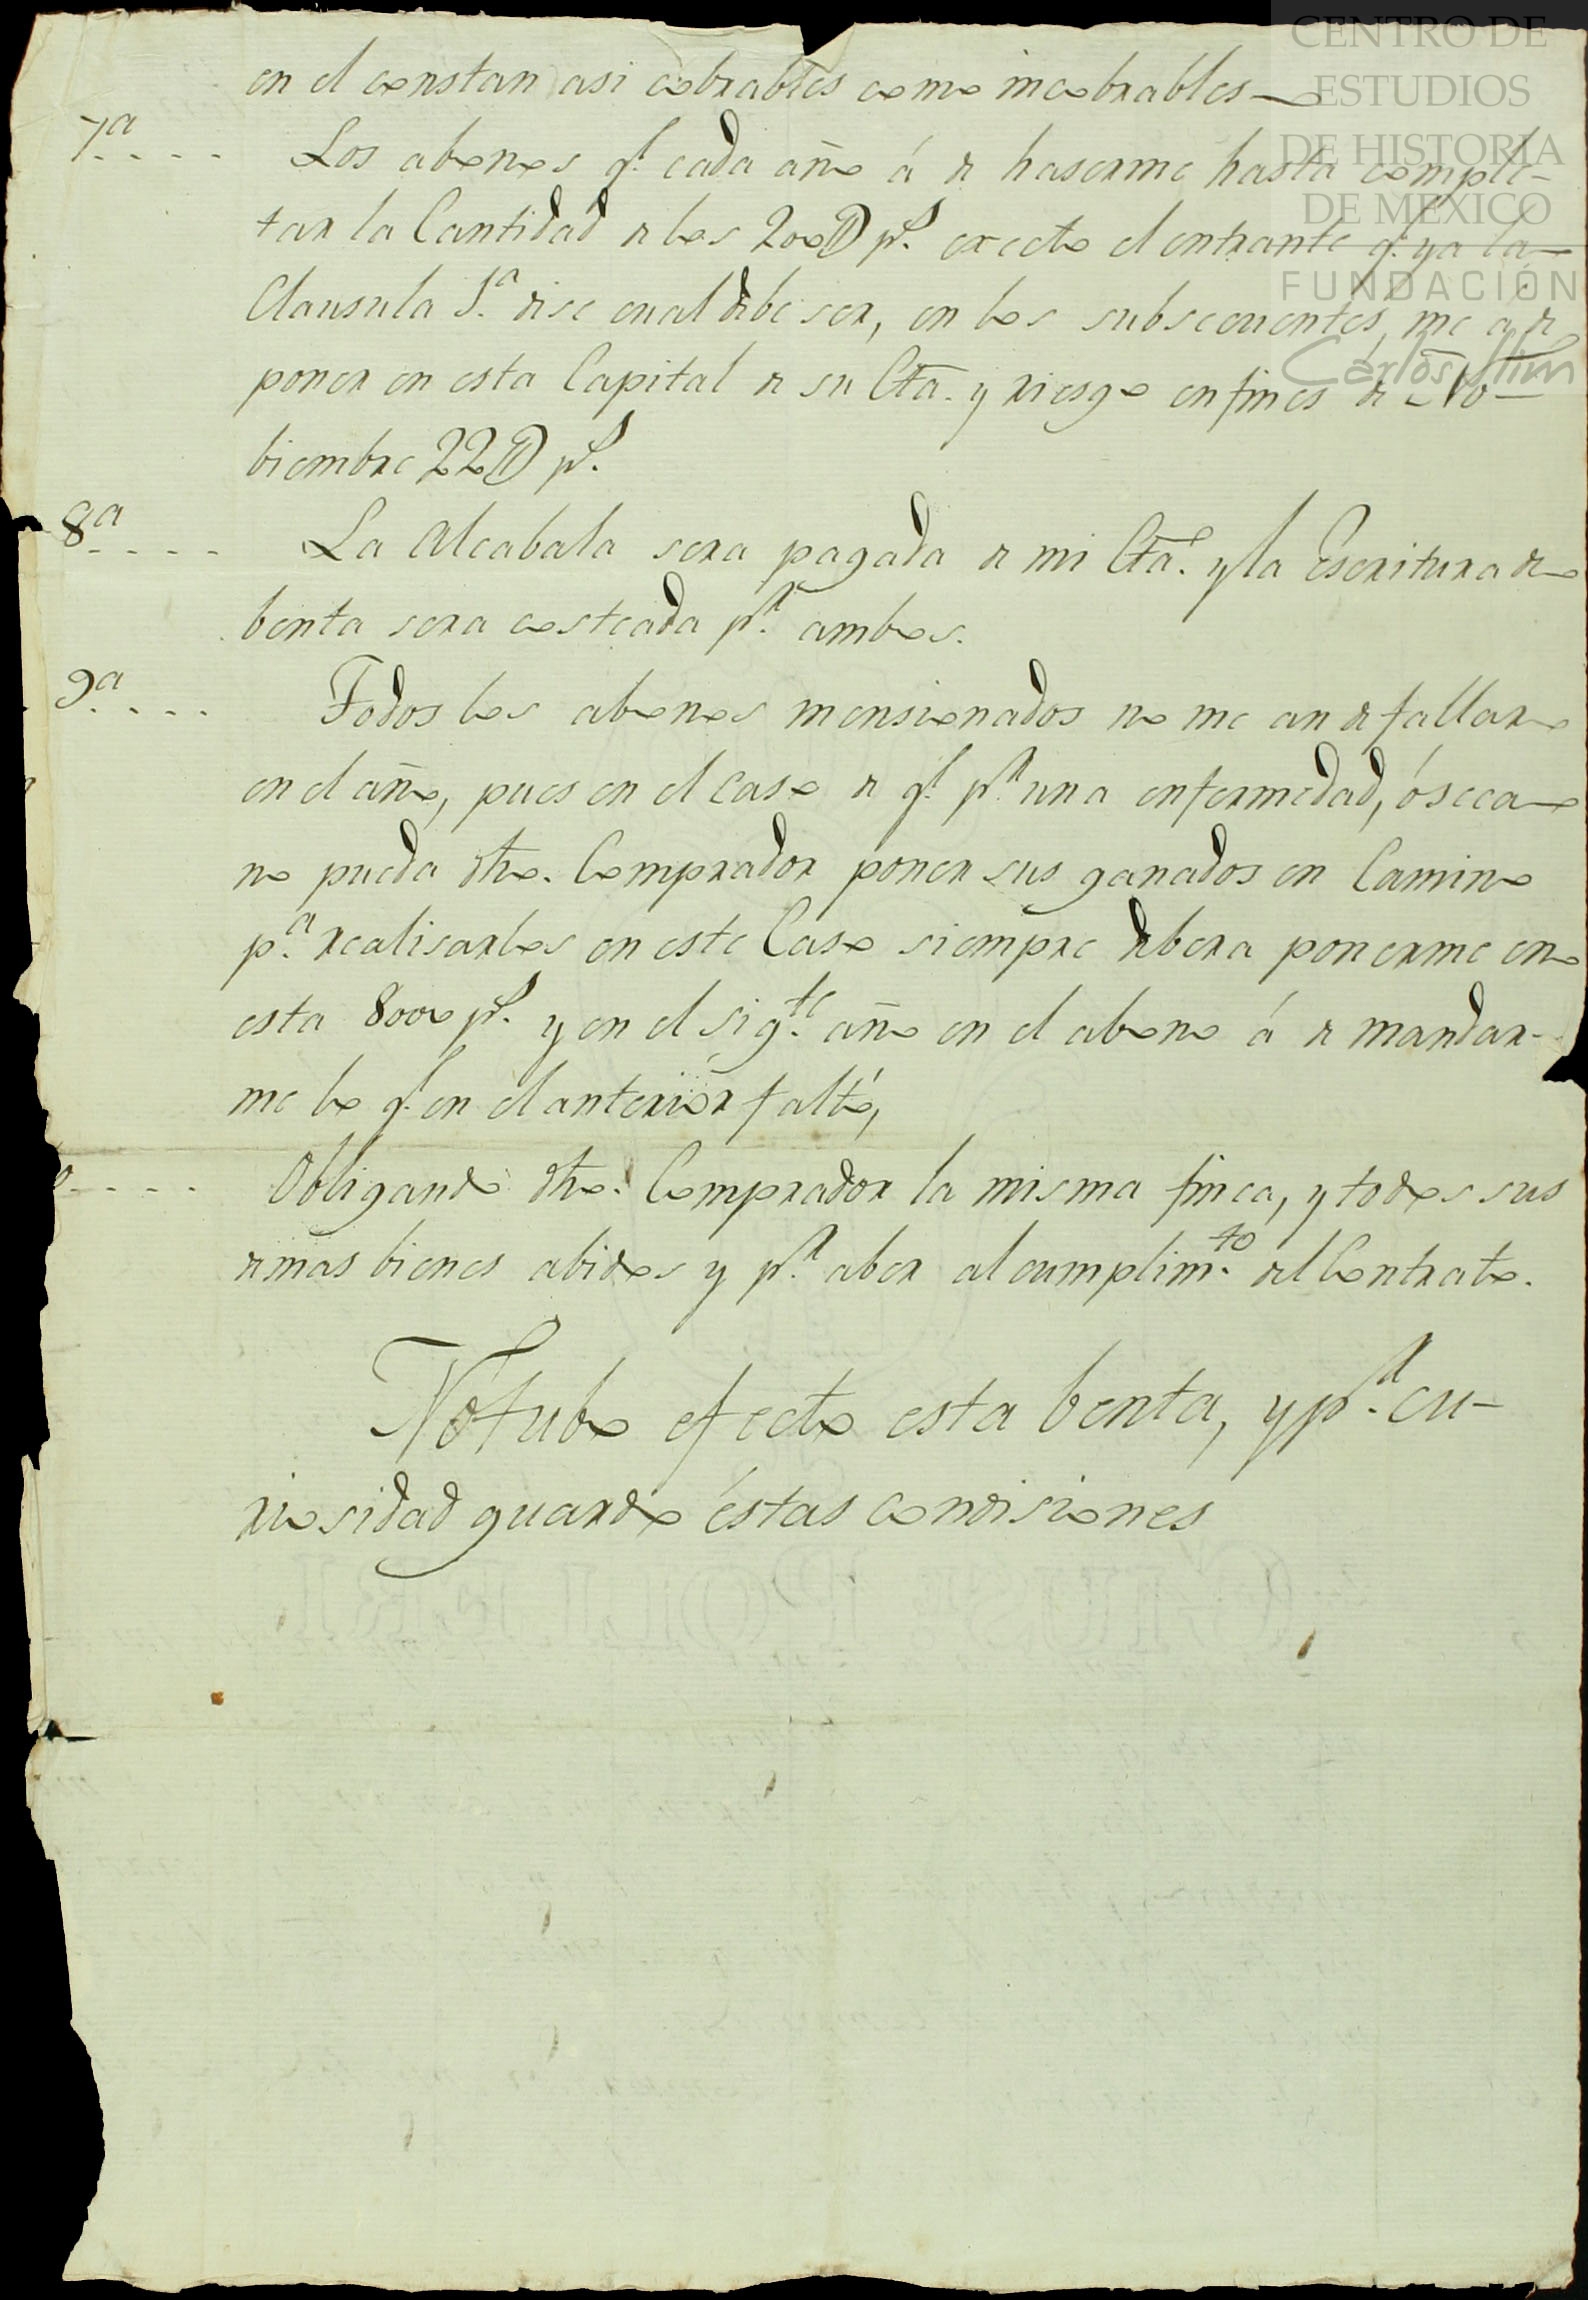 en el constan asi cobrables como incobrables
7ª.... Los abonos q.^e cada año á de haserme hasta comple-
tar la Cantidad de los 200D p.^s execto el entrante q.^e ya la
Clausula 1.ª dise cual debe ser, en los subsecuentes, me a de
poner en esta Capital de su Cta. y riesgo en fines de No-
biembre 22D p.^s
8ª.... La Alcabala sera pagada de mi Cta. y la Escritura de
benta sera costeada p.^r ambos.
9ª.... Todos los abonos mensionados no me an de fallar
en el año, pues en el caso de q.^e p.^r una enfermedad, ó seca
no pueda dho. Comprador poner sus ganados en Camino
p.ª realisarlos en este Caso siempre debera ponerme en
esta 8000 p.^s y en el sig.^te año en el abono á de mandar-
me lo q.^e en el anterior faltó,
.... Obligando dho. Comprador la misma finca, y todos sus
demas bienes abidos y p.^r aber al cumplim.^to del Contrato.
No tubo efecto esta benta, y p.^r cu-
riosidad guardo éstas condisiones
CENTRO DE
ESTUDIOS
DE HISTORIA
DE MEXICO
FUNDACIÓN
Carlos Slim